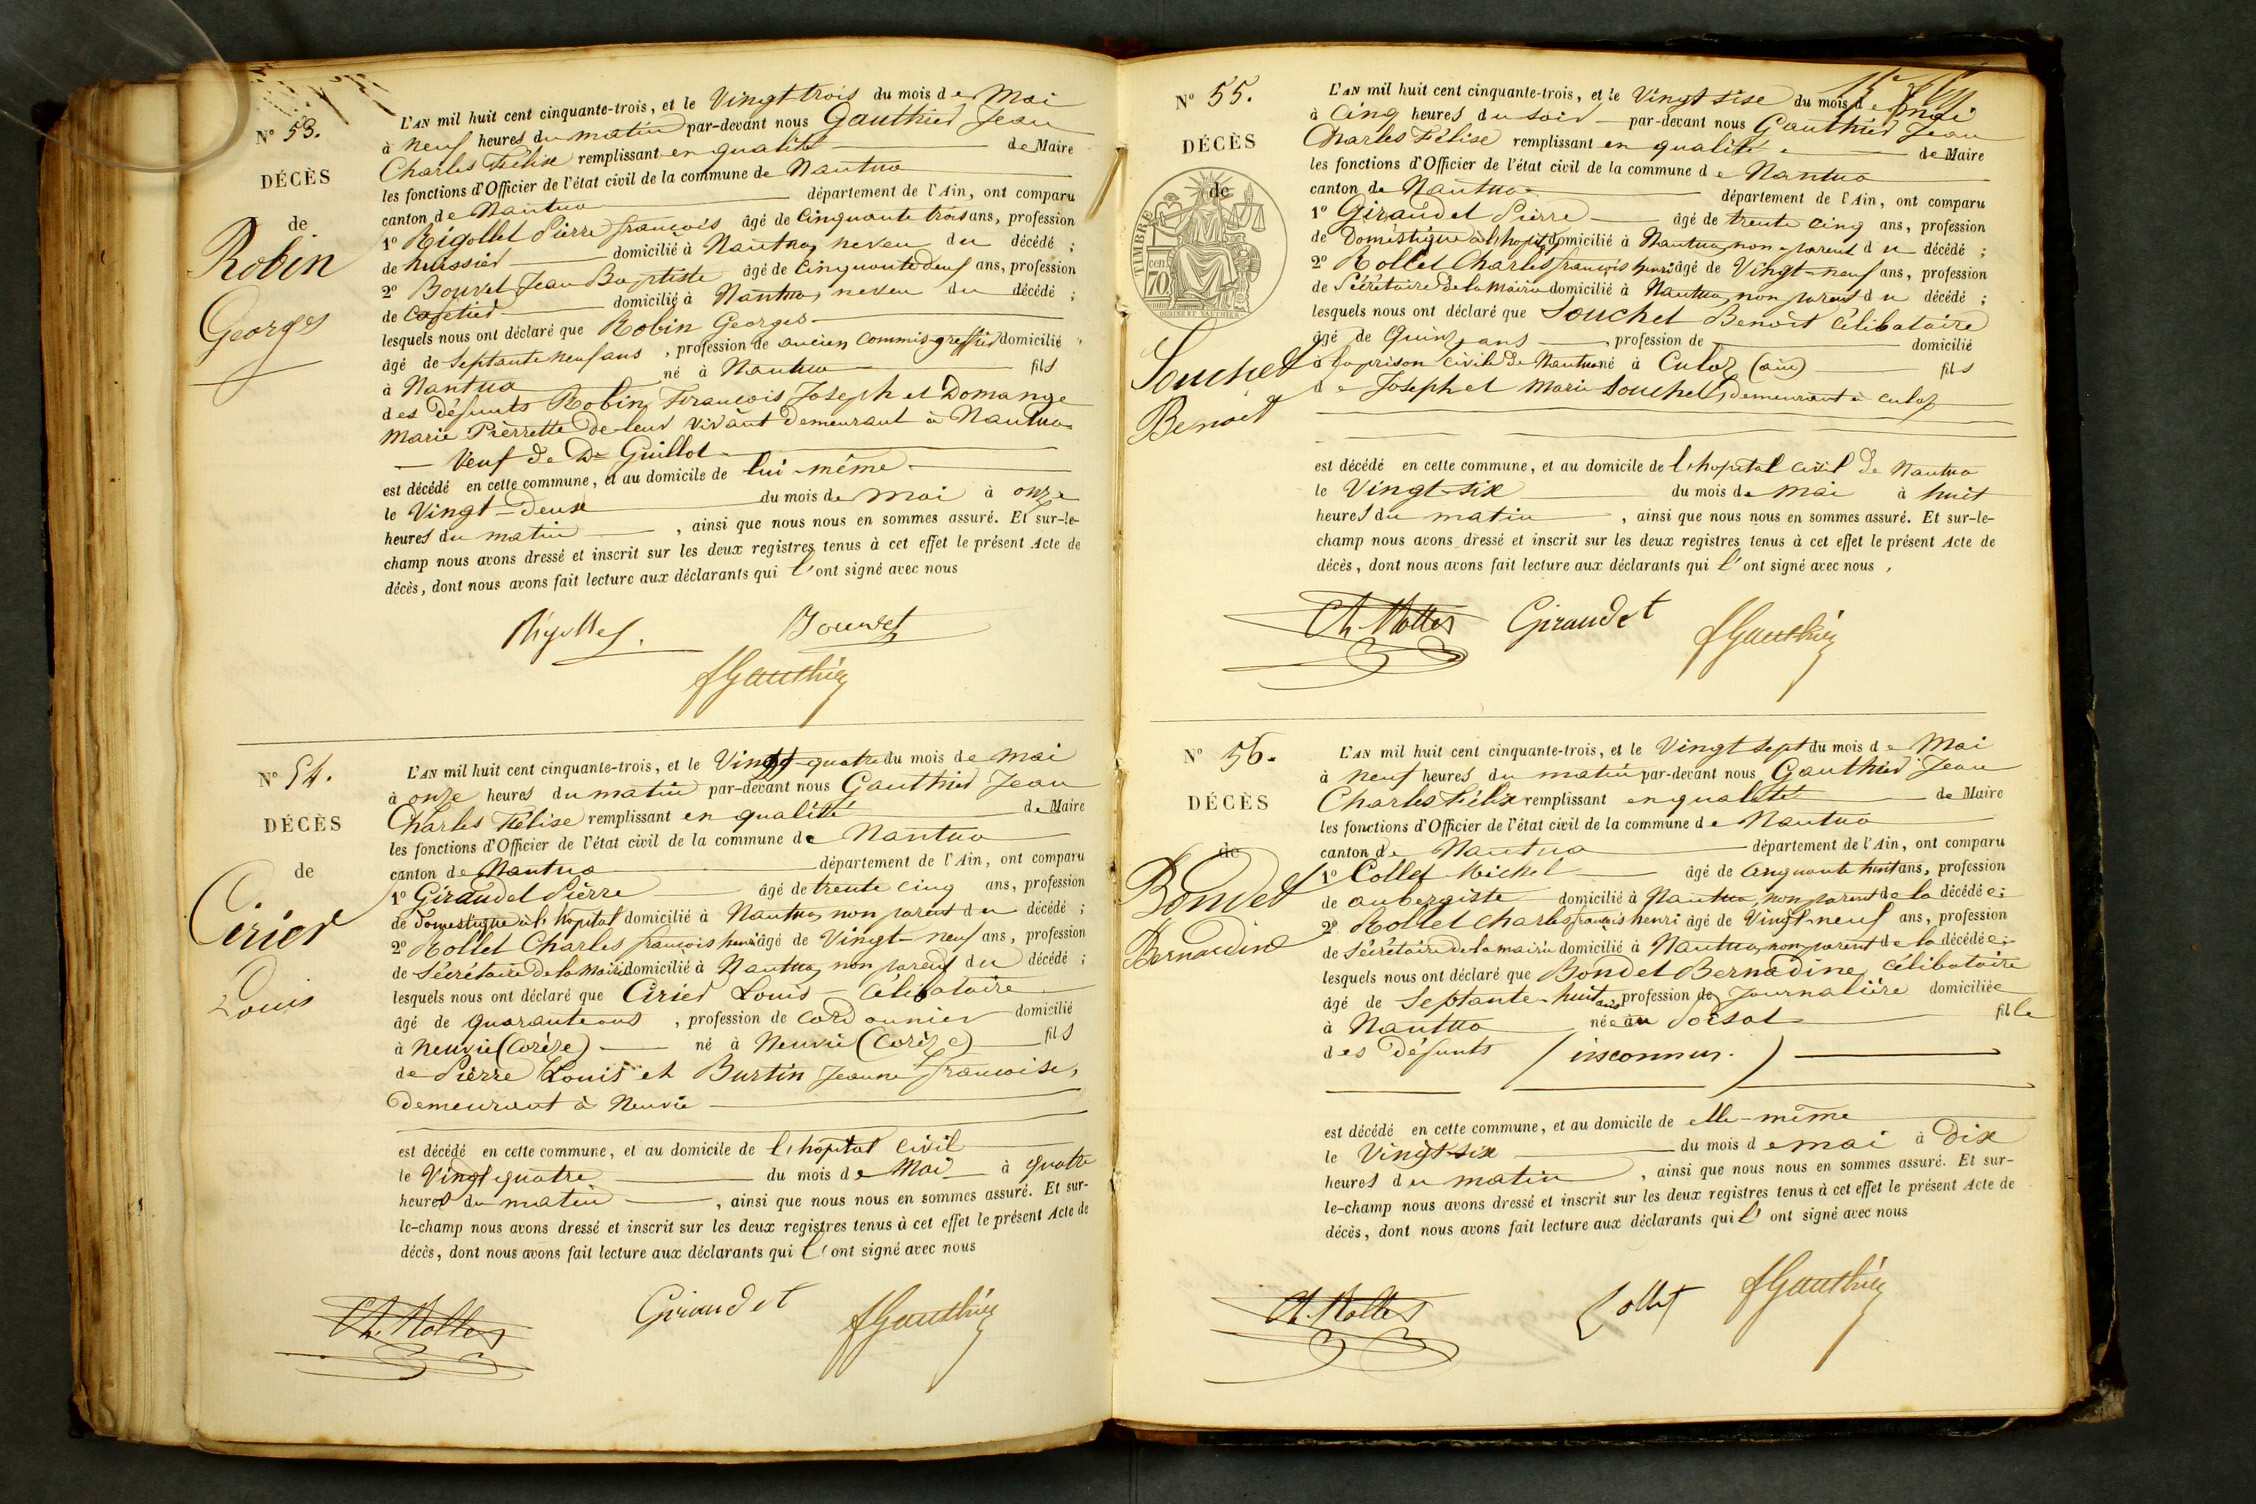 N° 53.
DÉCÈS
de
Robin
Georges
L'AN mil huit cent cinquante-trois, et le Vingt trois du mois de Mai
à neuf heures du matin par-devant nous Gauthier Jean
Charles Félise remplissant en qualité de Maire
les fonctions d'Officier de l'état civil de la commune de Nantua
canton de Nantua département de l'Ain, ont comparu
1° Rigollet Pierre françois âgé de Cinquante trois ans, profession
de huissier domicilié à Nantua, neveu du décédé ;
2° Bouvet Jean Baptiste âgé de Cinquante deux ans, profession
de Cafetier domicilié à Nantua, neveu du décédé ;
lesquels nous ont déclaré que Robin Georges
âgé de Septante neuf ans , profession de ancien commis greffier domicilié
à Nantua né à Nantua fils
des Défunts Robin, François Joseph et Domange
Marie Pierrette de leur vivant demeurant à Nantua
Veuf de De Guillot
est décédé en cette commune, et au domicile de lui-même
le Vingt-Deux du mois de mai à onze
heures du matin , ainsi que nous nous en sommes assuré. Et sur-le-
champ nous avons dressé et inscrit sur les deux registres tenus à cet effet le présent Acte de
décès, dont nous avons fait lecture aux déclarants qui l'ont signé avec nous
Rigollet. Bouvet
fGauthier
N° 54.
DÉCÈS
de
Cirier
Louis
L'AN mil huit cent cinquante-trois, et le Vingt-quatre du mois de mai
à onze heures du matin par-devant nous Gauthier Jean
Charles Félise remplissant en qualité de Maire
les fonctions d'Officier de l'état civil de la commune de Nantua
canton de Nantua département de l'Ain, ont comparu
1° Giraudet Pierre âgé de trente cinq ans, profession
de Domestique à l'hopital domicilié à Nantua, non parent du décédé ;
2° Rollet Charles françois henri âgé de Vingt-neuf ans, profession
de Sécrétaire de la Mairie domicilié à Nantua, non parent du décédé ;
lesquels nous ont déclaré que Cirier Louis - Célibataire
âgé de quarante ans , profession de Cordonnier domicilié
à Neuvie (Corèze) né à Neuvie (Corèze) fils
de Pierre Louis et Burtin Jeanne françoise,
Demeurant à Neuvie
est décédé en cette commune, et au domicile de l'hopital civil
le Vingt quatre du mois de Mai à quatre
heures du matin , ainsi que nous nous en sommes assuré. Et sur-
le-champ nous avons dressé et inscrit sur les deux registres tenus à cet effet le présent Acte de
décès, dont nous avons fait lecture aux déclarants qui l'ont signé avec nous
Ch. Rollet Giraudet fGauthier
N° 55.
DÉCÈS
de
TIMBRE
70
Souchet
Benoit
L'AN mil huit cent cinquante-trois, et le Vingt sise du mois de mai
à Cinq heures du soir par-devant nous Gauthier Jean
Charles Félise remplissant en qualité de Maire
les fonctions d'Officier de l'état civil de la commune de Nantua
canton de Nantua département de l'Ain, ont comparu
1° Giraudet Pierre âgé de trente cinq ans, profession
de Domestique à l'hopital domicilié à Nantua, non parent du décédé ;
2° Rollet Charles françois henri âgé de Vingt-neuf ans, profession
de Sécrétaire de la Mairie domicilié à Nantua, non parent du décédé ;
lesquels nous ont déclaré que Souchet Benoit Célibataire
âgé de Quinze ans profession de domicilié
à la prison civile de Nantua né à Culoz (ain) fils
de Joseph et Marie Souchet, demeurant à culoz
est décédé en cette commune, et au domicile de l'hopital civil de Nantua
le Vingt-six du mois de mai à huit
heures du matin , ainsi que nous nous en sommes assuré. Et sur-le-
champ nous avons dressé et inscrit sur les deux registres tenus à cet effet le présent Acte de
décès, dont nous avons fait lecture aux déclarants qui l'ont signé avec nous
Ch. Rollet Giraudet fGauthier
N° 56.
DÉCÈS
de
Bondet
Bernardine
L'AN mil huit cent cinquante-trois, et le Vingt sept du mois de Mai
à neuf heures du matin par-devant nous Gauthier Jean
Charles Félix remplissant en qualité de Maire
les fonctions d'Officier de l'état civil de la commune de Nantua
canton de Nantua département de l'Ain, ont comparu
1° Collet Michel âgé de Cinquante huit ans, profession
de aubergiste domicilié à Nantua, non parent de la décédée ;
2° Rollet Charles françois henri âgé de Vingt-neuf ans, profession
de Sécrétaire de la mairie domicilié à Nantua, non parent de la décédée ;
lesquels nous ont déclaré que Bondet Bernadine, Célibataire
âgé de Septante-huit ans profession de Journalière domiciliée
à Nantua née au fille
des Défunts (inconnus.)
est décédé en cette commune, et au domicile de elle-même
le Vingt-six du mois de mai à Dix
heures du matin , ainsi que nous nous en sommes assuré. Et sur-
le-champ nous avons dressé et inscrit sur les deux registres tenus à cet effet le présent Acte de
décès, dont nous avons fait lecture aux déclarants qui l'ont signé avec nous
Ch. Rollet Collet fGauthier